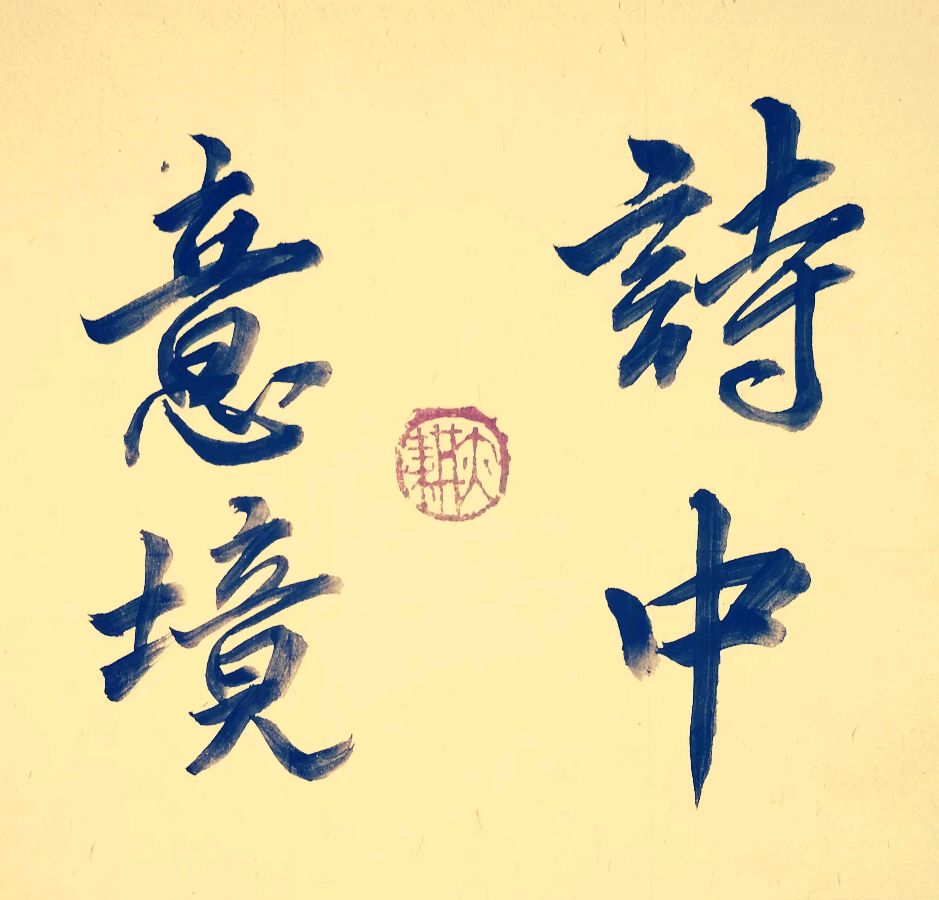 詩中
意境